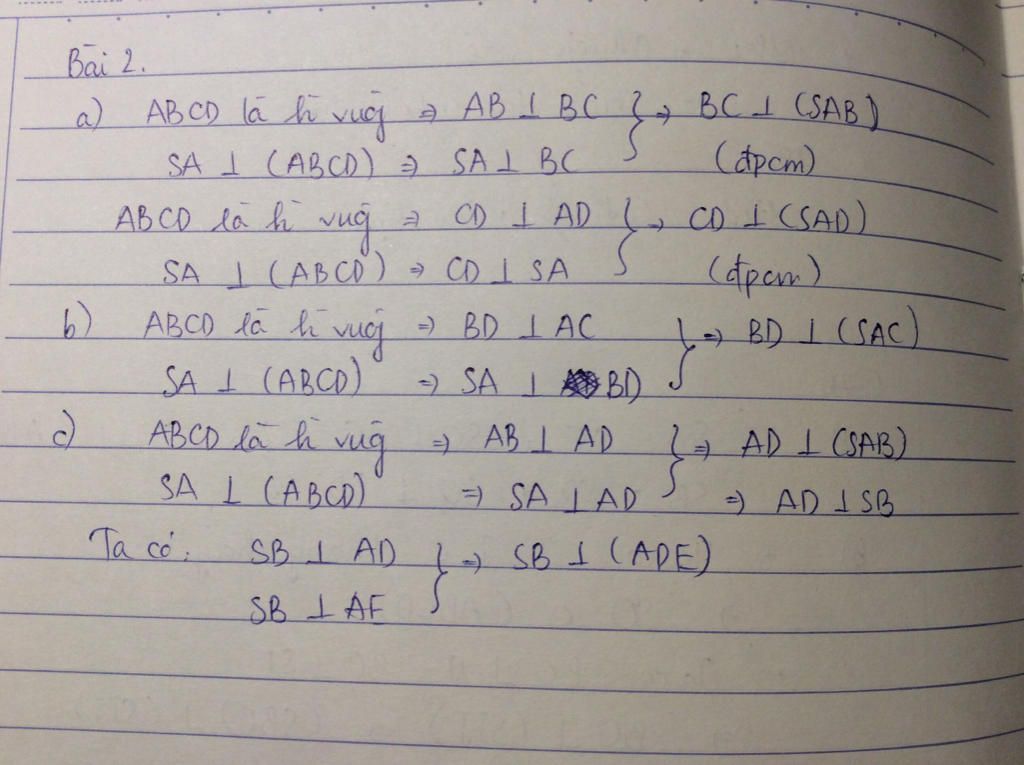 Bài 2.
a) ABCD là h vug ⇒ AB ⊥ BC } ⇒ BC ⊥ (SAB)
SA ⊥ (ABCD) ⇒ SA ⊥ BC (đpcm)
ABCD là h vug ⇒ CD ⊥ AD } ⇒ CD ⊥ (SAD)
SA ⊥ (ABCD) ⇒ CD ⊥ SA (đpcm)
b) ABCD là h vug ⇒ BD ⊥ AC } ⇒ BD ⊥ (SAC)
SA ⊥ (ABCD) ⇒ SA ⊥ BD
c) ABCD là h vug ⇒ AB ⊥ AD } ⇒ AD ⊥ (SAB)
SA ⊥ (ABCD) ⇒ SA ⊥ AD ⇒ AD ⊥ SB
Ta có: SB ⊥ AD } ⇒ SB ⊥ (ADE)
SB ⊥ AE